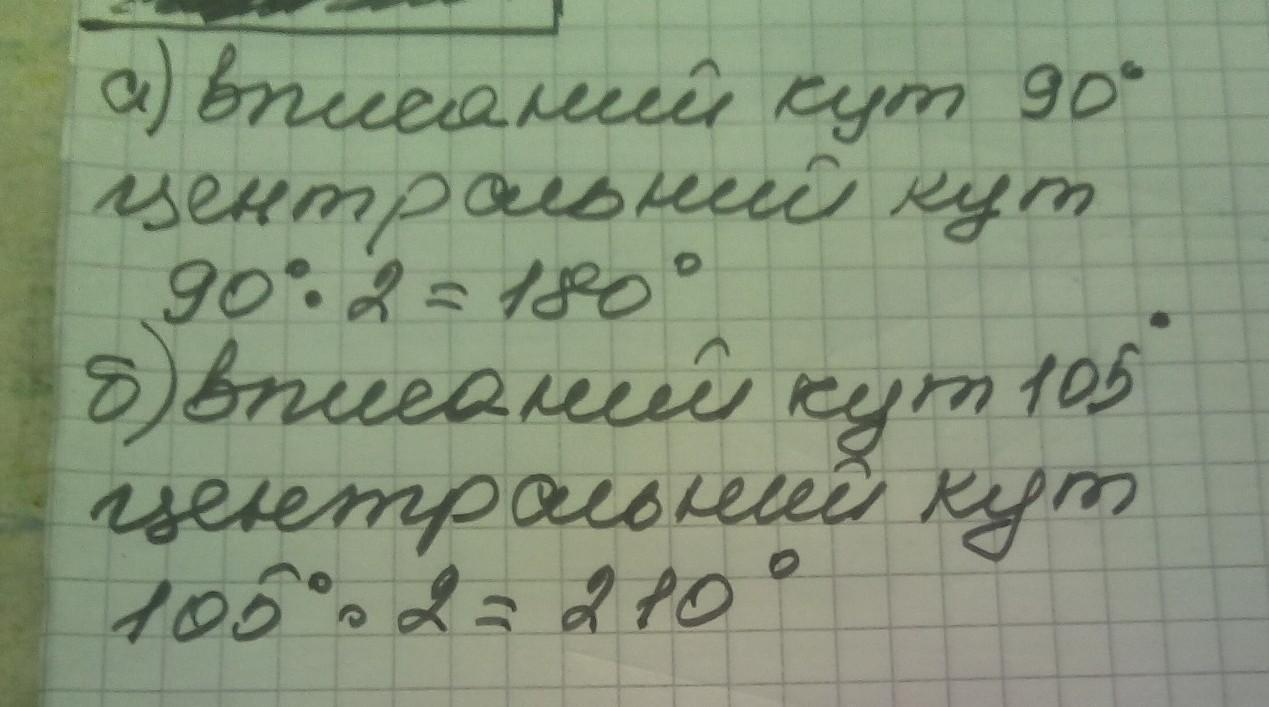 а) вписаний кут 90°
центральний кут
90° · 2 = 180°
б) вписаний кут 105°
центральний кут
105° · 2 = 210°